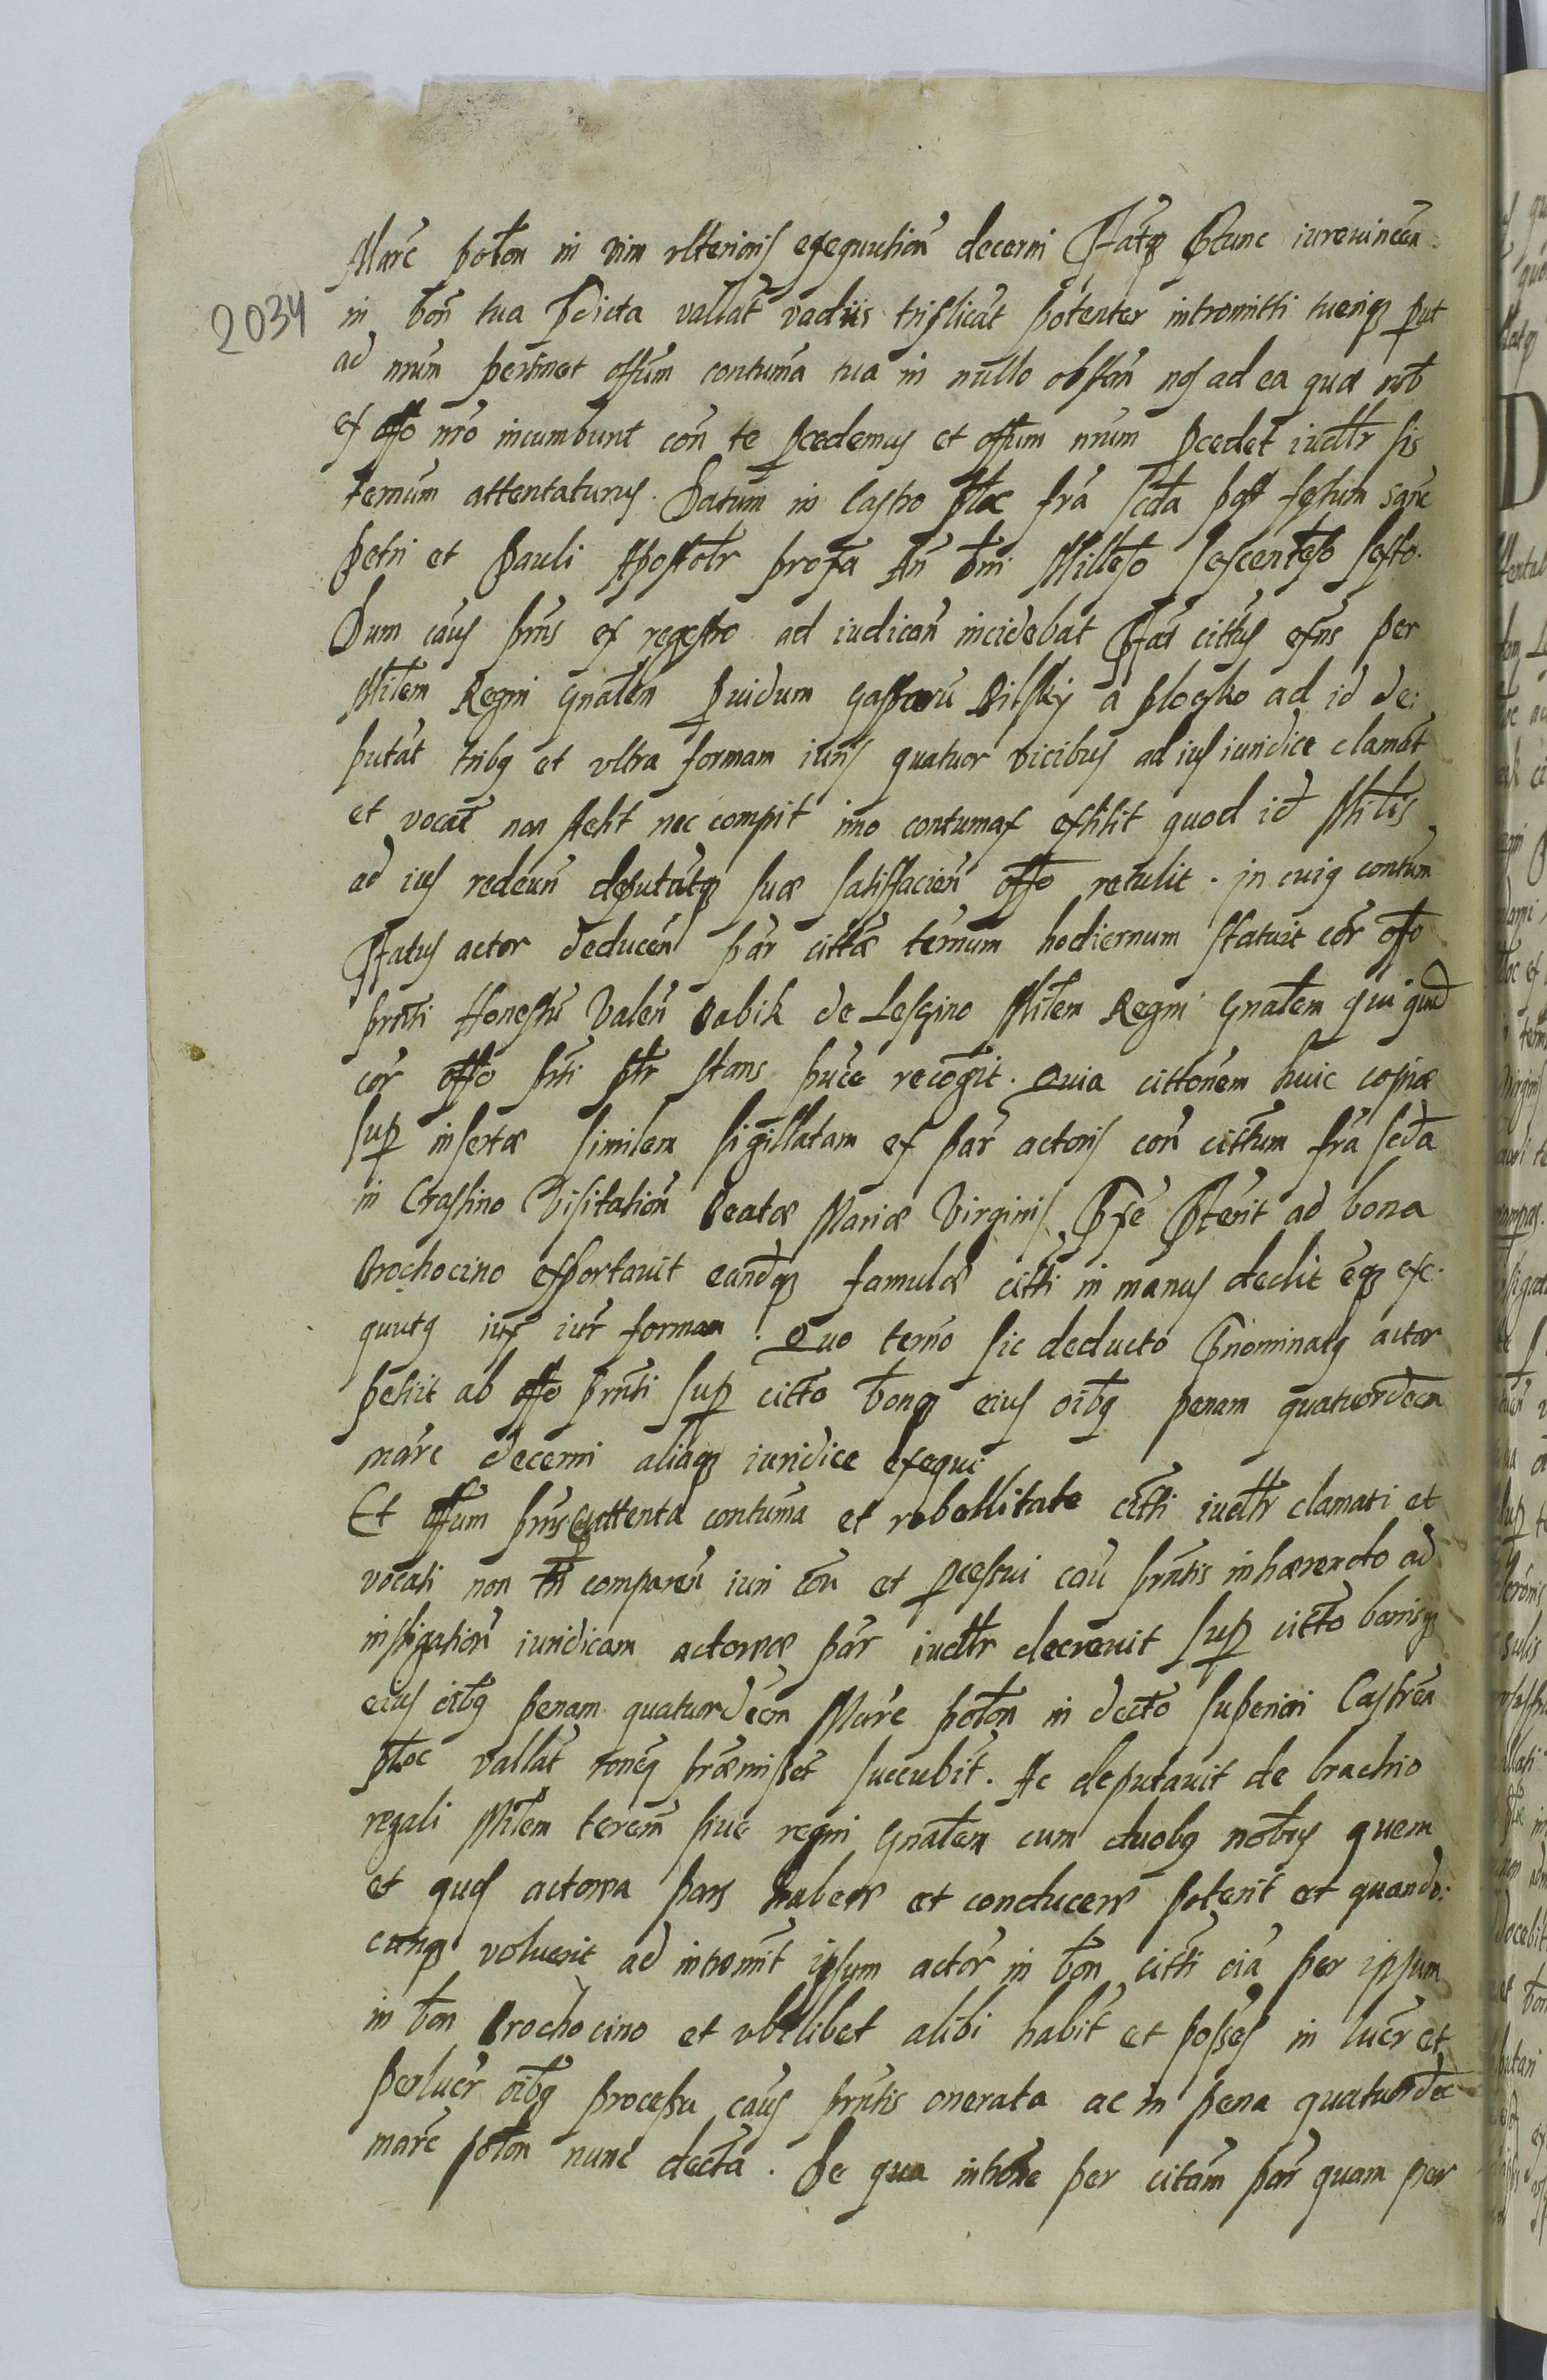 2034
Marc polon in vim ulterioris exequution decerni Pfatq Ptunc iurevincen
in bon tua Pdicta vallat vadiis triplicat potenter intromitti tueriq put
ad nrum pertinet offum contuma tua in nullo obstan nos ad ea quæ nob
ex offo nro incumbunt con te pcedemus et offum nrum pcedet iudlr sis
ternum attentaturus. Datum in Castro Ploc fra scda post festum sanc
Petri et Pauli Apostolr proxa An Dni Millesso sexcentesso sexto.
Dum caus prns ex regestro ad iudican incidebat Pfat cittus exns per
Mitem Regni gnalem pvidum Gasparu Bilsky a Plogko ad id de:
putat tribq et ultra formam iuris quatuor vicibus ad ius iuridice clamat
et vocat non stetit nec compit imo contumax extitit quod id Mites
ad ius redeun deputatq suæ satisfacien offo retulit. In cuiq contum
Pfatus actor deducen par cittæ ternum hodiernum statuit cor offo
prnti Honestu Valen Babik de Lesgino Mitem Regni gnalem qui quid
cor offo prnti ptr stans puce recogit. Quia cittonem huic copiæ
sup insertæ similem sigillatam ex par actoris con cittum fra scda
in Crastino Visitation Beatæ Mariæ Virginis Pxe Pterit ad bona
Brochocino exportavit eandq famulæ citti in manus dedit eq exe:
quutq iux iur formam. Quo terno sic deducto Pnominatq actor
petiit ab offo prnti sup citto bonq eius oibq penam quatuordecm
marc decerni aliaq iuridice exequi
Et offum prns attenta contuma et rebellitate citti iudlr clamati et
vocati non tn comparen iuri con et pcessui cau prntis inhærendo ad
instigation iuridicam actoreæ par iudlr decrevit sup citto bonisq
eius oibq penam quatuordecm Marc polon in decto superiori Castren
Ploc vallat roneq præmisset succubit. Ac deputavit de brachio
regali Mitem terem sive regni gnalem cum duobq nobus quem
et quos actorea pars habere et conducere poterit et quando:
cunq voluerit ad intromit ipsum actor in bon citti oia per ipsum
in bon Brochocino et ubilibet alibi habit et posses in lucr et
perlucr oibq processu caus prntis onerata ac in pena quatuordec
marc polon nunc decta. De qua introne per citam par quam per